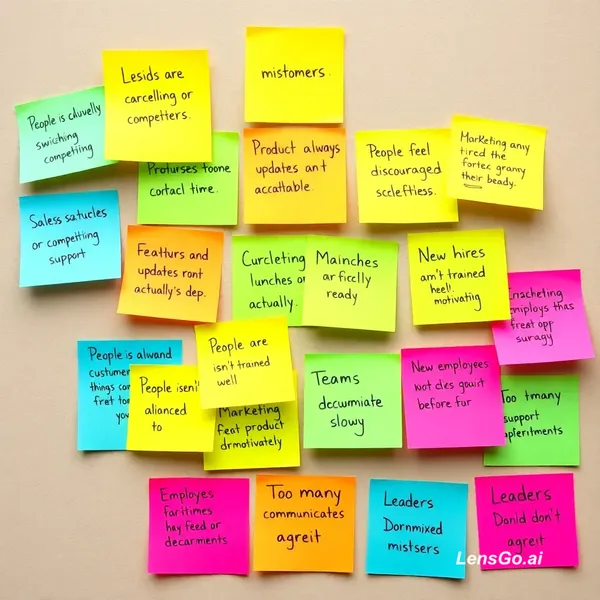 mistomers.
Lesids are
carcelling or
competters.
People is
swiching
compelling
Product always
updates an't
accatlable.
People feel
discouraged
scleftiess.
Marketing any
tired the
fortec grany
their beady.
contacl time.
Saless
or compelting
support
Featturs and
updates ront
actually's dep.
Curcleting
lunches or
actually.
Mainches
ar ficclly
ready
New hires
am't trained
heel!.
motivating
employs thas
frest opp
suragy
People is
custumer
things con
fret to
you
People are
isn't trained
well
People isen't
alianced
to
Marketing
feat product
drmotivately
Teams
decwmiate
slowy
New employees
wot dies gouit
before fur
Too tmany
support
Employes
faritimes
hay feed or
decarments
Too many
communicates
agreit
Leaders
Dornmixed
mistsers
Leaders
Donld don't
agreit
LensGo.ai